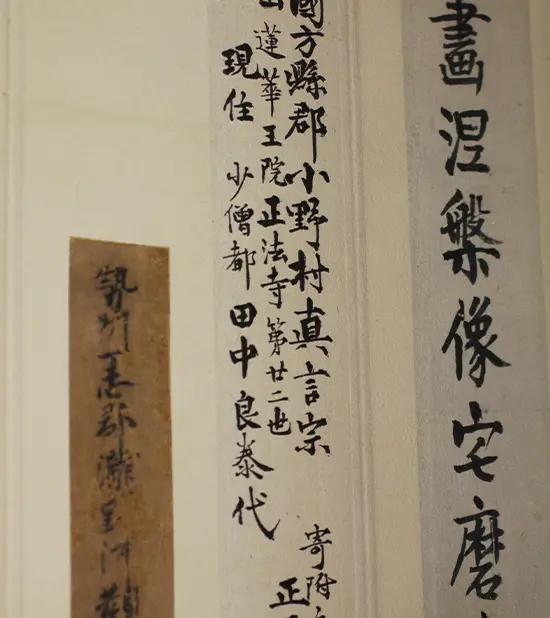 畫涅槃像宅磨
國方縣郡小野村真言宗
寄附
正
山蓮華王院正法寺第廿二世
現住 少僧都田中良泰代
郡瀧